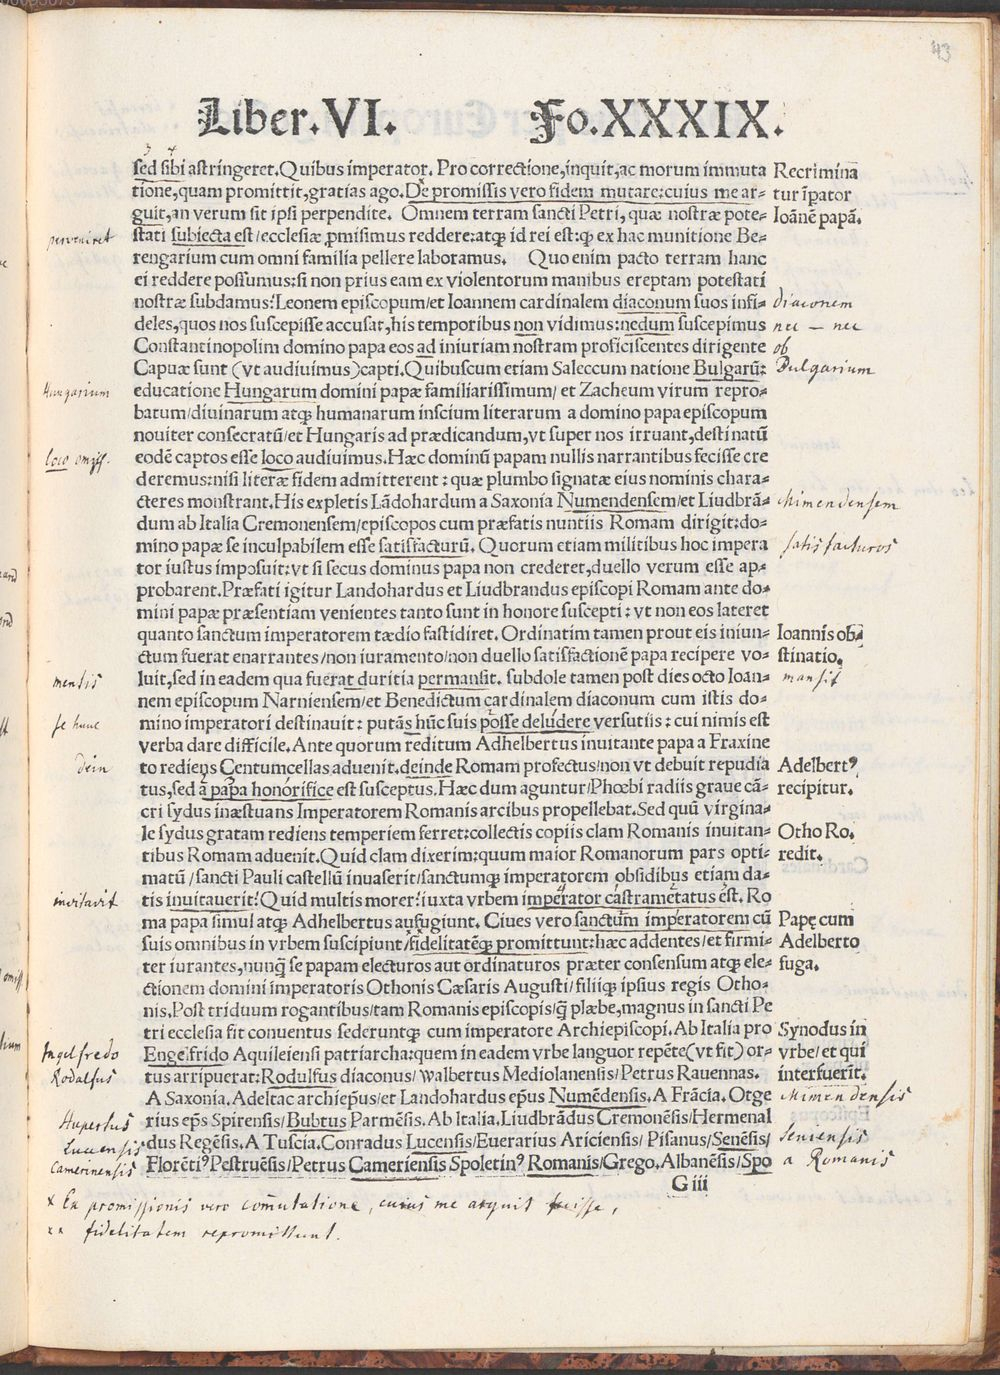 43
Liber.VI. Fo.XXXIX.
sed sibi astringeret.Quibus imperator. Pro correctione,inquit,ac morum immuta
tione,quam promittit,gratias ago.De promissis vero fidem mutare:cuius me ar-
guit,an verum sit ipsi perpendite. Omnem terram sancti Petri, quæ nostræ pote-
stati subiecta est/ecclesiæ ꝓmisimus reddere:atqꝫ id rei est:qꝫ ex hac munitione Be-
rengarium cum omni familia pellere laboramus. Quo enim pacto terram hanc
ei reddere possumus:si non prius eam ex violentorum manibus ereptam potestati
nostræ subdamus:Leonem episcopum/et Ioannem cardinalem diaconum suos infi-
deles,quos nos suscepisse accusat,his temporibus non vidimus:nedum suscepimus
Constantinopolim domino papa eos ad iniuriam nostram proficiscentes dirigente
Capuæ sunt (vt audiuimus)capti.Quibuscum etiam Saleccum natione Bulgarū:
educatione Hungarum domini papæ familiarissimum/ et Zacheum virum repro-
batum/diuinarum atqꝫ humanarum inscium literarum a domino papa episcopum
nouiter consecratū/et Hungaris ad prædicandum,vt super nos irruant,destinatū
eodē captos esse loco audiuimus.Hæc dominū papam nullis narrantibus fecisse cre
deremus:nisi literæ fidem admitterent : quæ plumbo signatæ eius nominis chara-
cteres monstrant.His expletis Lādohardum a Saxonia Numendensem/et Liudbrā-
dum ab Italia Cremonensem/episcopos cum præfatis nuntiis Romam dirigit:do-
mino papæ se inculpabilem esse satisfacturū. Quorum etiam militibus hoc impera
tor iustus imposuit:vt si secus dominus papa non crederet,duello verum esse ap-
probarent.Præfati igitur Landohardus et Liudbrandus episcopi Romam ante do-
mini papæ præsentiam venientes tanto sunt in honore suscepti : vt non eos lateret
quanto sanctum imperatorem tædio fastidiret. Ordinatim tamen prout eis iniun-
ctum fuerat enarrantes/non iuramento/non duello satisfactionē papa recipere vo-
luit,sed in eadem qua fuerat duritia permansit. subdole tamen post dies octo Ioan-
nem episcopum Narniensem/et Benedictum cardinalem diaconum cum istis do-
mino imperatori destinauit: putās hūc suis posse deludere versutiis : cui nimis est
verba dare difficile.Ante quorum reditum Adhelbertus inuitante papa a Fraxine
to rediens Centumcellas aduenit.deinde Romam profectus/non vt debuit repudia
tus,sed a papa honorifice est susceptus.Hæc dum aguntur/Phœbi radiis graue cā-
cri sydus inæstuans Imperatorem Romanis arcibus propellebat.Sed quū virgina-
le sydus gratam rediens temperiem ferret:collectis copiis clam Romanis inuitan-
tibus Romam aduenit.Quid clam dixerim:quum maior Romanorum pars opti-
matū/sancti Pauli castellū inuaserit/sanctumqꝫ imperatorem obsidibus etiam da-
tis inuitauerit:Quid multis morer:iuxta vrbem imperator castrametatus est. Ro
ma papa simul atqꝫ Adhelbertus aufugiunt. Ciues vero sanctum imperatorem cū
suis omnibus in vrbem suscipiunt/fidelitatēqꝫ promittunt:hæc addentes/et firmi-
ter iurantes,nunq̄ se papam electuros aut ordinaturos præter consensum atqꝫ ele-
ctionem domini imperatoris Othonis Cæsaris Augusti/filiiqꝫ ipsius regis Otho-
nis.Post triduum rogantibus/tam Romanis episcopis/q̄ plæbe,magnus in sancti Pe
tri ecclesia fit conuentus sederuntqꝫ cum imperatore Archiepiscopi.Ab Italia pro
Engelfrido Aquileiensi patriarcha:quem in eadem vrbe languor repēte(vt fit) or-
tus arripuerat:Rodulfus diaconus/walbertus Mediolanensis/Petrus Rauennas.
A Saxonia.Adeltac archiep̄us/et Landohardus ep̄us Numēdensis.A Frācia. Otge
rius ep̄s Spirensis/Bubtus Parmēsis.Ab Italia.Liudbrādus Cremonēsis/Hermenal
dus Regēsis.A Tuscia.Conradus Lucensis/Euerarius Ariciensis/ Pisanus/Senēsis/
Florētiꝰ Pestruēsis/Petrus Cameriensis Spoletinꝰ Romanis/Grego.Albanēsis/Spo
G iii
Recrimina
tur īpator
Ioānē papā.
diaconem
nec — nec
ob
Bulgarium
Mimendensem
satisfacturos
Ioannis ob-
stinatio.
mansit
Adelbertꝰ
recipitur.
Otho Ro.
redit.
Papę cum
Adelberto
fuga.
Synodus in
vrbe/et qui
interfuerīt.
Mimendensis
Seniensis
a Romanis
perveniret
Hungarium
loco omiss.
mentis
se hunc
dein
invitavit
Ingelfredo
Rodalfus
Hupertus
Lucensis
Camerinensis
x Ea promissionis vero com̄utatione, cuius me arguit fuisse,
xx fidelitatem repromittunt.